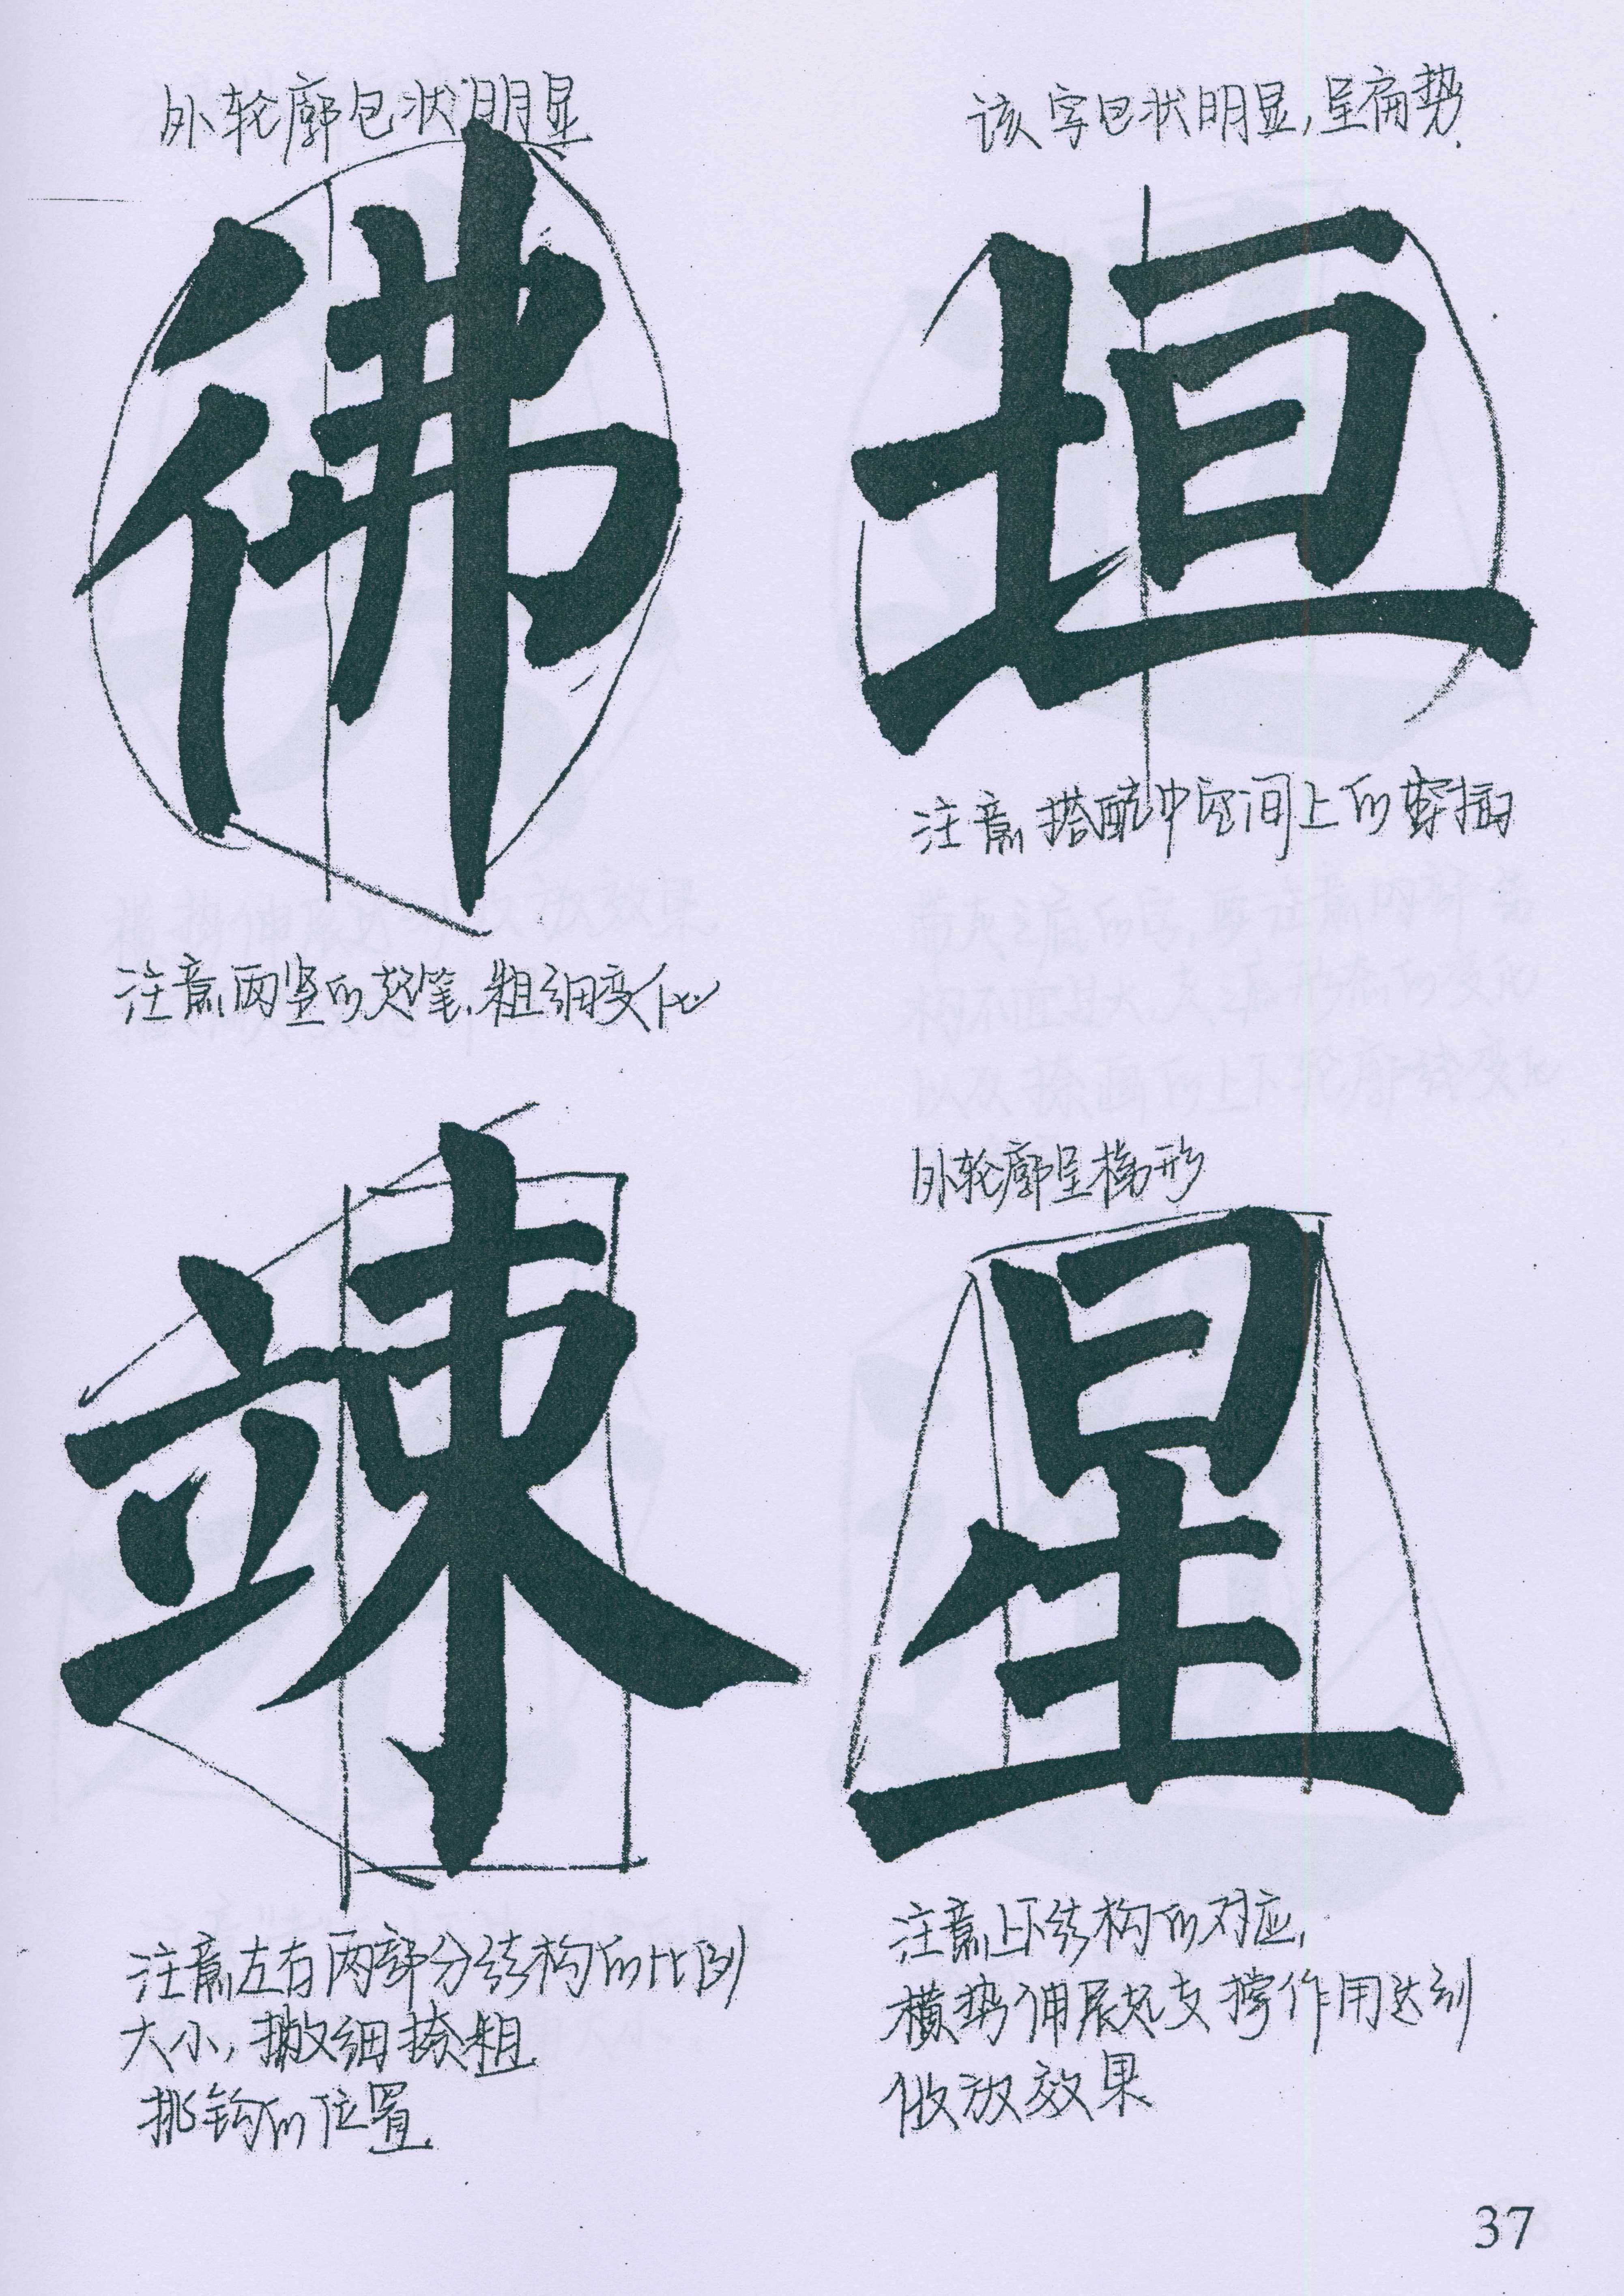 外轮廓包状明显
佛
注意两竖的起笔,粗细变化
该字包状明显,呈扁势.
垣
注意搭配中空间上的穿插
竦
注意左右两部分结构的比例
大小,撇细捺粗
挑钩的位置
外轮廓呈梯形
星
注意上下结构的对应,
横势伸展起支撑作用达到
收放效果
37